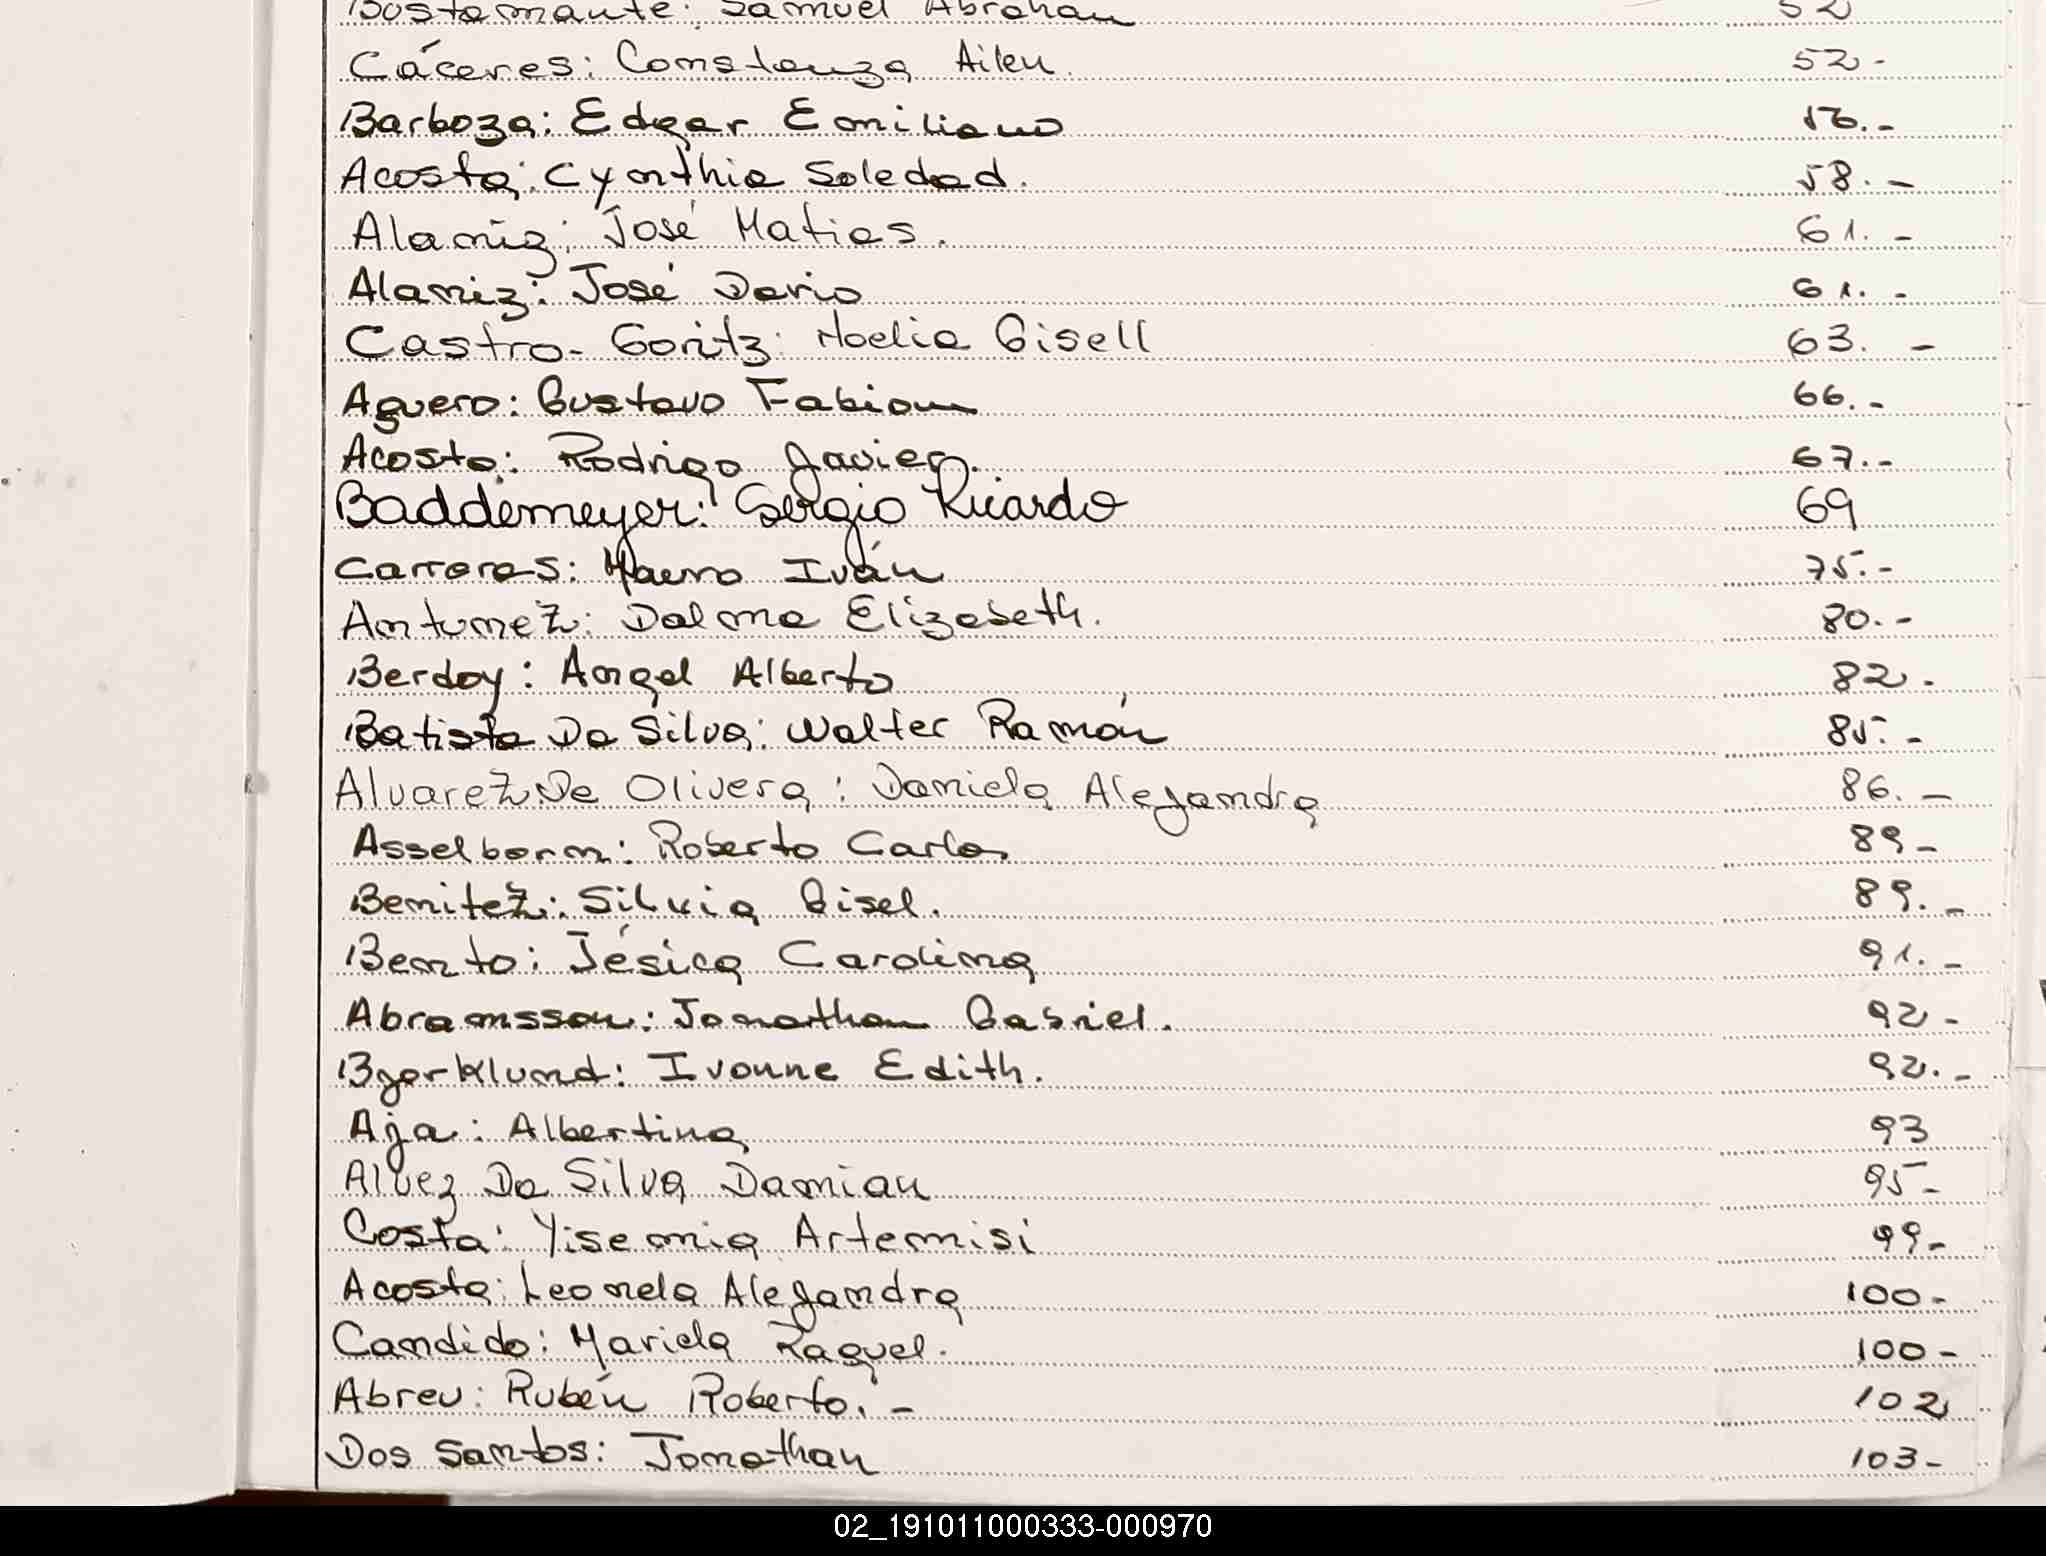 Bustamante: Samuel Abrahan 52
Cáceres: Constanza Ailen. 52-
Barboza: Edgar Emiliano 56.-
Acosta: Cynthia Soledad. 58.-
Alamiz: José Matias. 61.-
Alamiz: José Dario 61.-
Castro- Goritz: Noelia Gisell 63. -
Aguero: Gustavo Fabian 66.-
Acosta: Rodrigo Javier. 67.-
Baddemeyer: Sergio Ricardo 69
Carreras: Mauro Iván 75.-
Antunez: Dalma Elizabeth. 80.-
Berdoy: Angel Alberto 82.
Batista Da Silva: Walter Ramón 85.-
Alvarez De Olivera: Daniela Alejandra 86.-
Asselborn: Roberto Carlos 89-
Benitez: Silvia Gisel. 89.-
Bento: Jésica Carolina 91.-
Abramsson: Jonathan Gabriel. 92-
Bjorklund: Ivonne Edith. 92.-
Aja: Albertina 93
Alvez Da Silva Damian 95-
Costa: Yisemia Artemisi 99-
Acosta: Leonela Alejandra 100-
Candido: Mariela Raquel. 100-
Abreu: Rubén Roberto.- 102
Dos Santos: Jonathan 103-
02_191011000333-000970